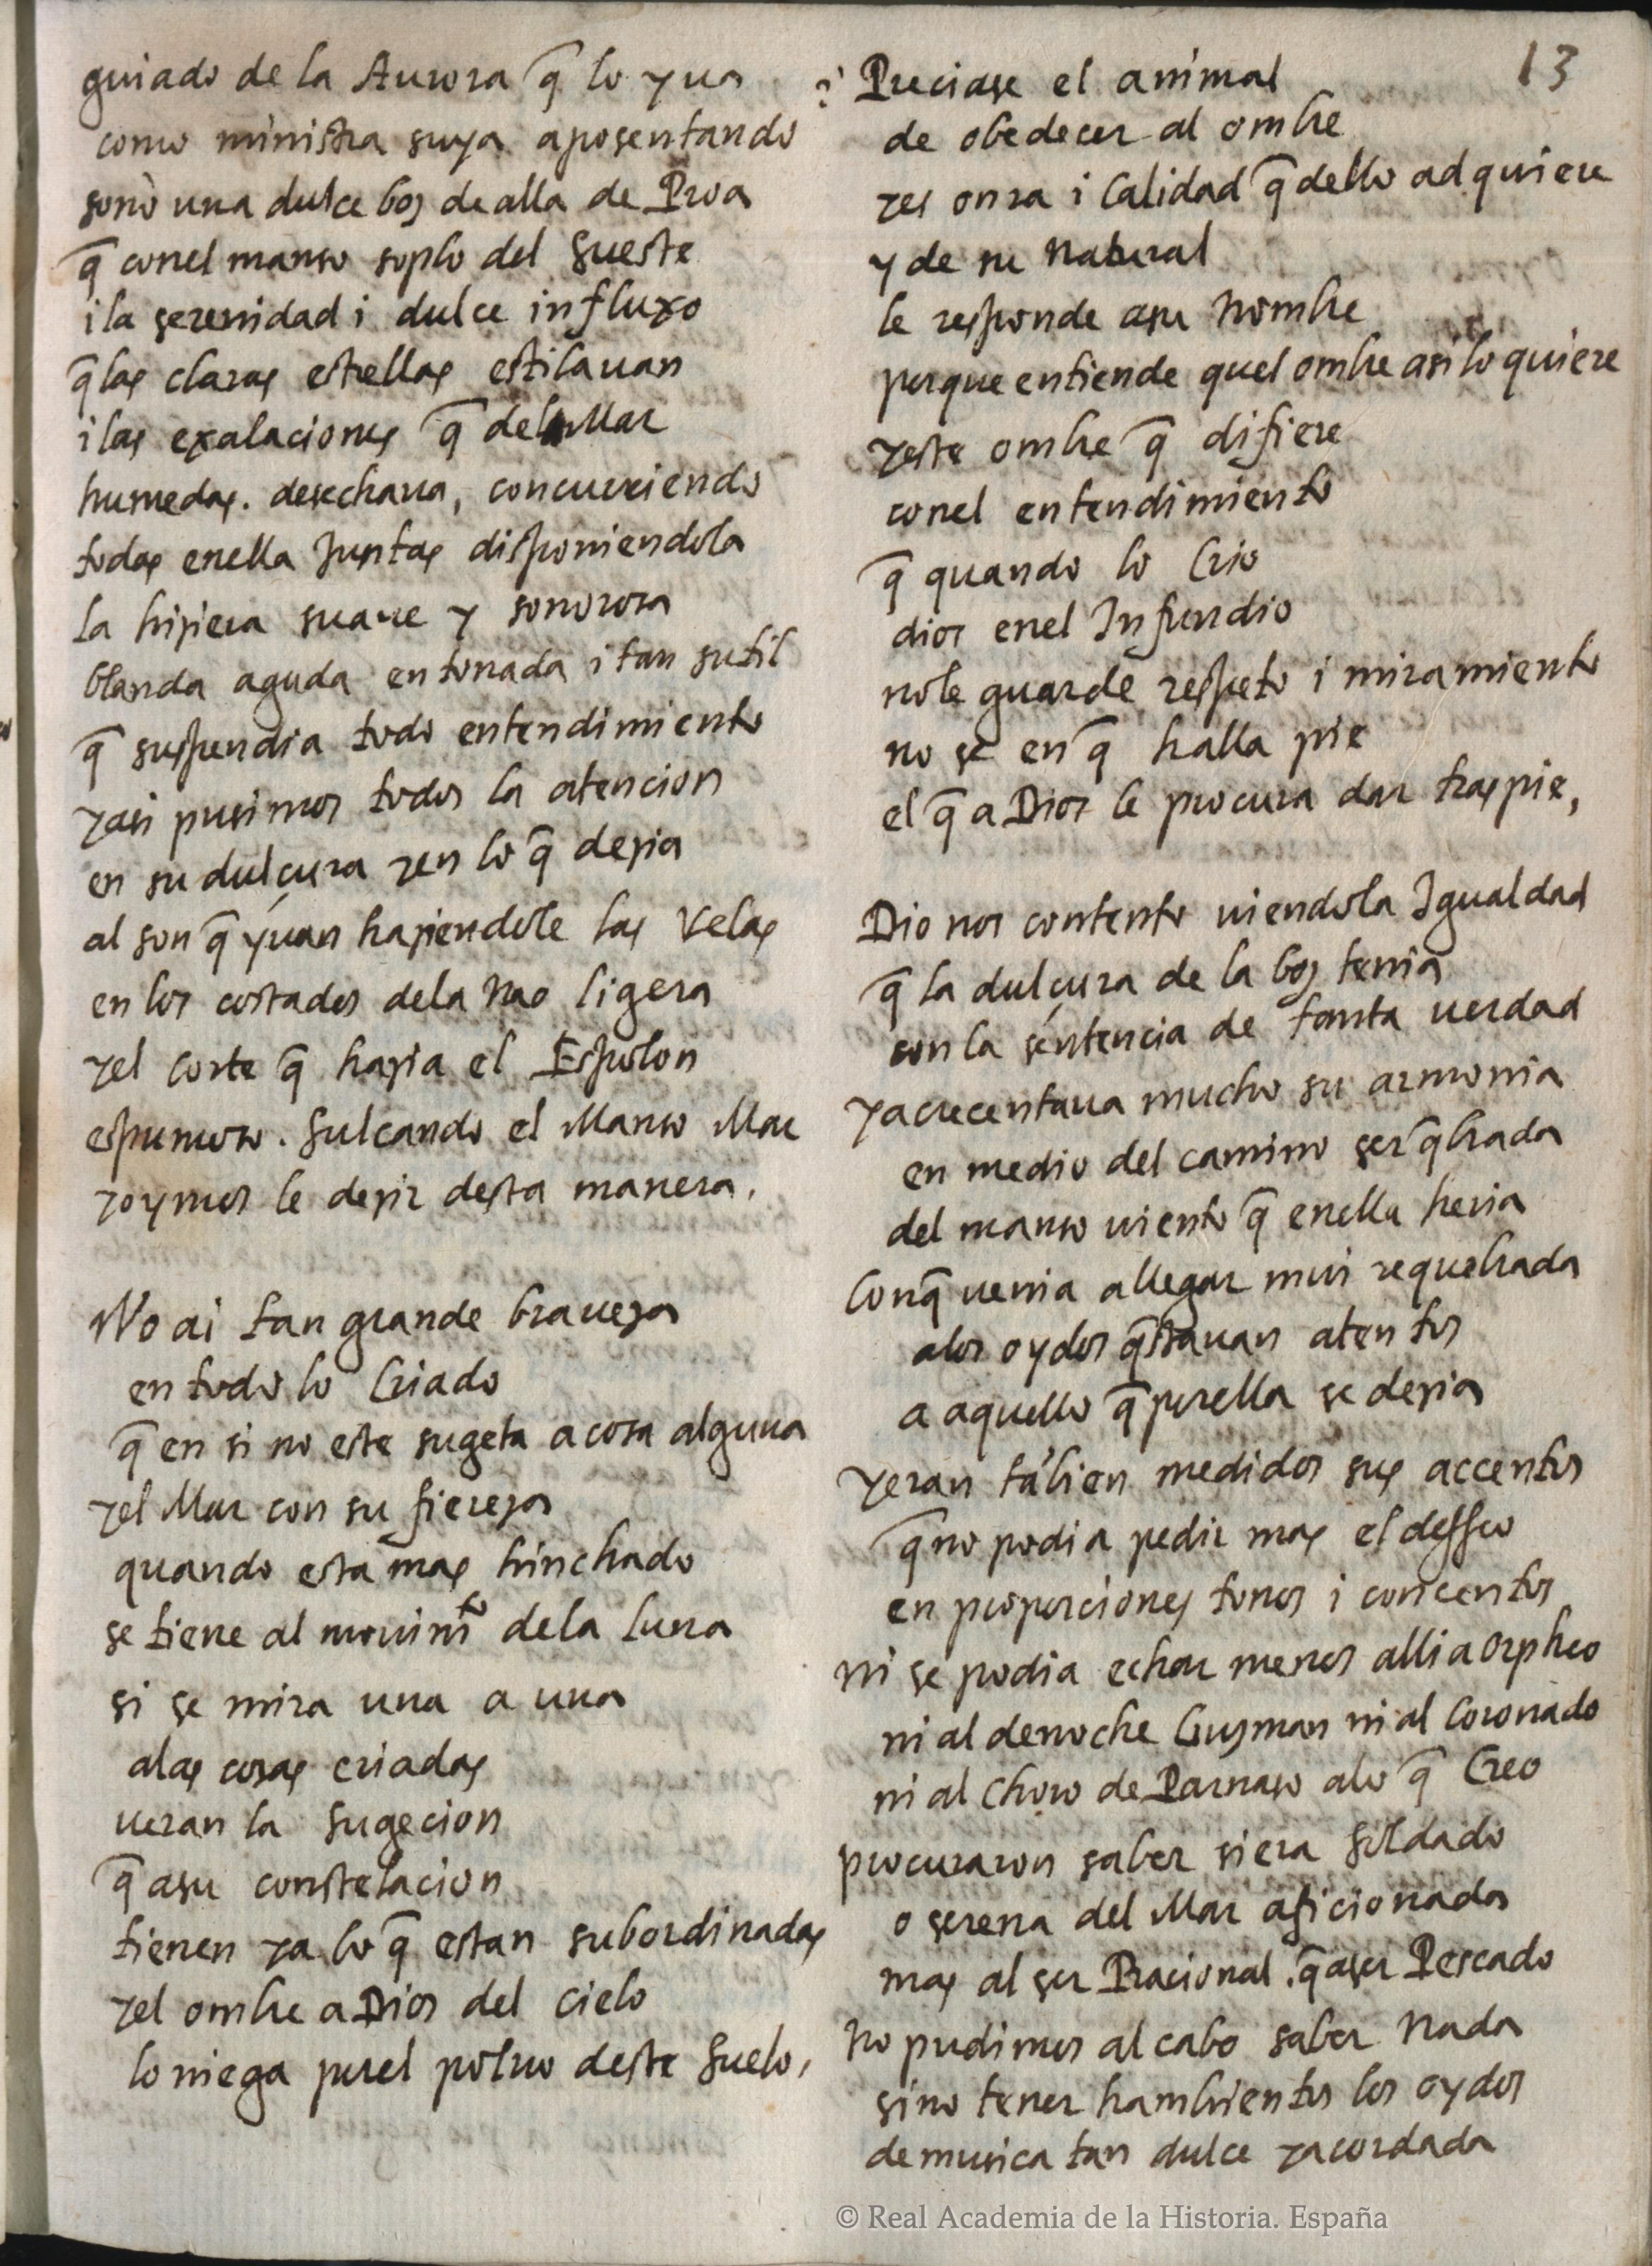 13
guiado de la Aurora q̄ lo yua
como ministra suya aposentando
sonò una dulce boz de alla de Proa
q̄ conel manso soplo del Sueste
i la serenidad i dulce influxo
q̄ las claras estrellas estilauan
i las exalaciones q̄ del Mar
humedas. desechaua, concurriendo
todas enella Juntas disponiendola
la hiziera suaue y sonorosa
blanda aguda entonada i tan sutil
q̄ suspendia todo entendimiento
yasi pusimos todos la atencion
en su dulçura yen lo q̄ dezia
al son q̄ yuan haziendole las Velas
en los costados dela Nao ligera
yel corte q̄ hazia el Espolon
espumoso. Sulcando el Manso Mar
yoymos le dezir desta manera.
No ai tan grande braueza
en todo lo Criado
q̄ en si no este sugeta a cosa alguna
yel Mar con su fiereza
quando esta mas hinchado
se tiene al mouimto dela Luna
si se mira una a una
alas cosas criadas
ueran la Sugecion
q̄ asu constelacion
tienen ya lo q̄ estan subordinadas
yel ombre a Dios del cielo
lo niega porel poluo deste Suelo,
Preciase el animal
de obedecer al ombre
yes onra i Calidad q̄ dello adquiere
y de su Natural
le responde asu Nombre
porque entiende quel ombre asi lo quiere
yeste ombre q̄ difiere
conel entendimiento
q̄ quando lo Crio
dios enel Infundio
nole guarde respeto i miramiento
no se en q̄ halla pie
el q̄ a Dios le procura dar traspie,
Dio nos contento uiendola Igualdad
q̄ la dulçura de la boz tenia
con la sentencia de tanta uerdad
yacrecentaua mucho su armonia
en medio del camino ser q̄brada
del manso uiento q̄ enella heria
Conq̄ uenia allegar mui requebrada
alos oydos q̄stauan atentos
a aquello q̄ porella se dezia
yeran tābien medidos sus accentos
q̄ no podia pedir mas el desseo
en proporciones tonos i concentos
ni se podia echar menos alli a Orpheo
ni al denoche Guzman ni al Coronado
ni al Choro de Parnaso alo q̄ Creo
procuraron saber si era Soldado
o serena del Mar aficionada
mas al ser Racional. q̄ aser Pescado
No pudimos al cabo saber Nada
sino tener hambrientos los oydos
de musica tan dulce yacordada
© Real Academia de la Historia. España